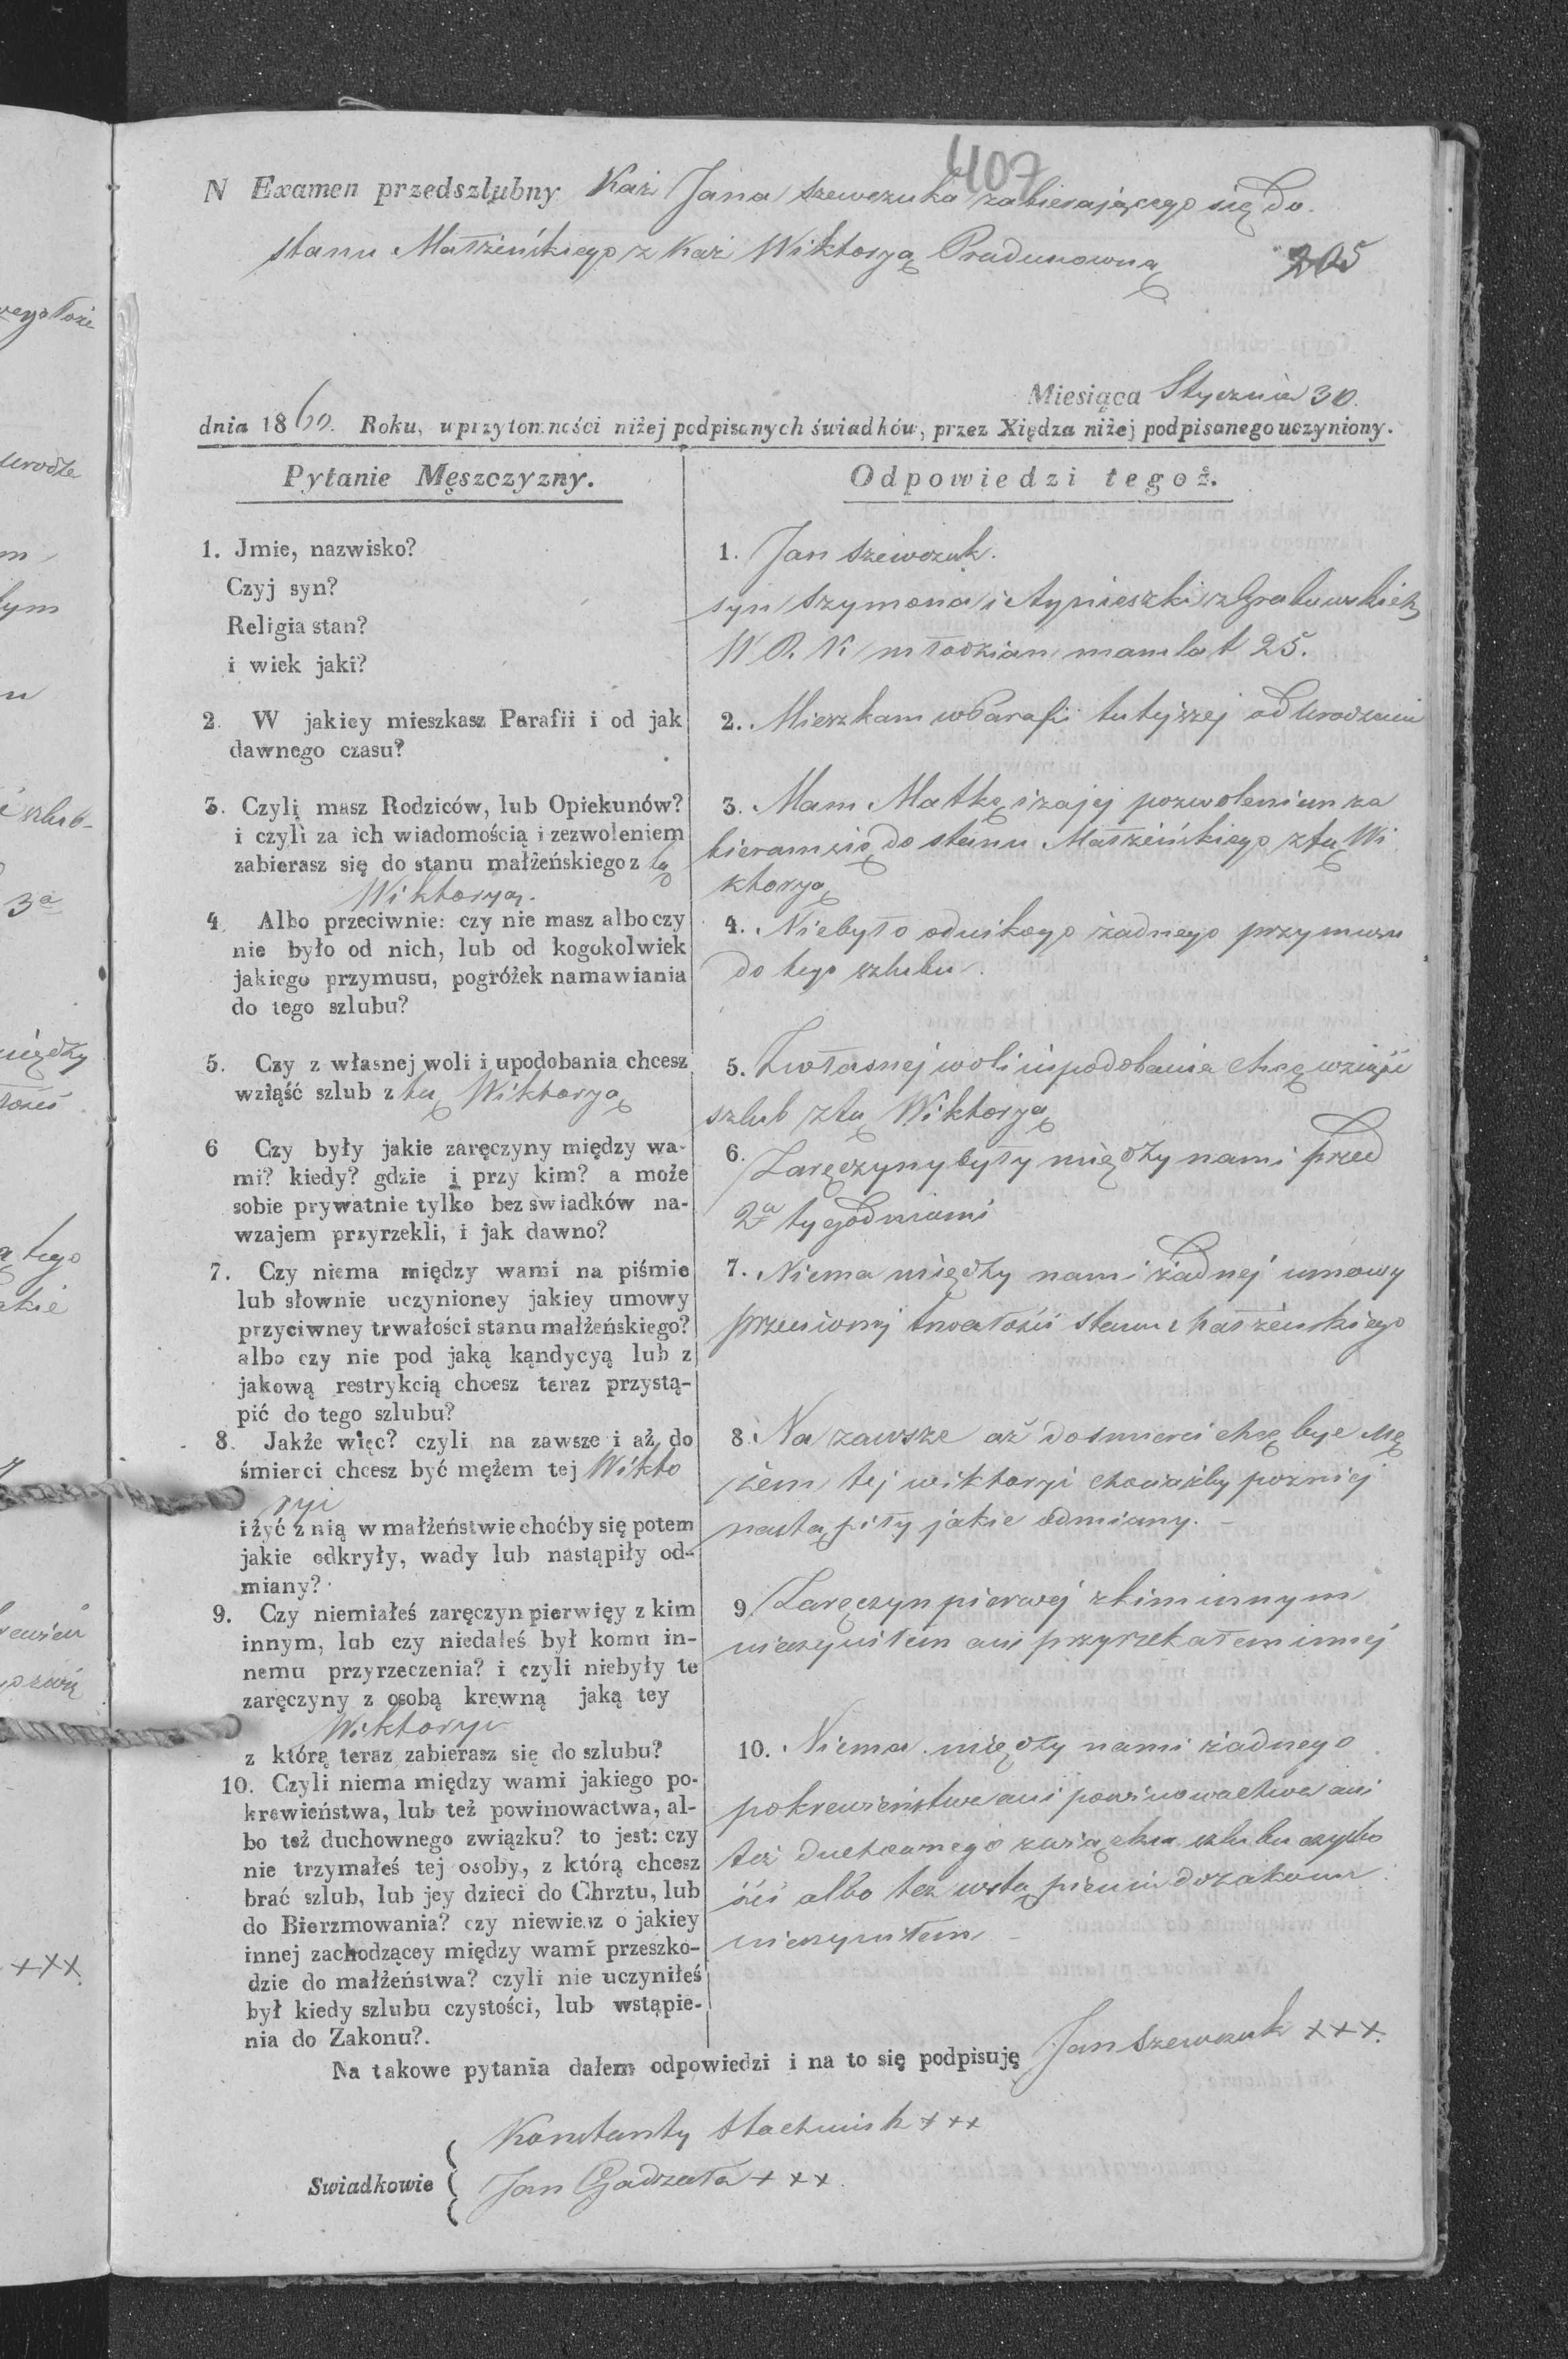 407
N Examen przedszlubny Kaź Jana Szewczuka zabierającego się do
stanu Małżeńskiego z Kaź Wiktoryą
205
Miesiąca Stycznia 30.
dnia 1860. Roku, w przytomności niżej podpisanych świadków, przez Xiędza niżej podpisanego uczyniony.
Pytanie Męszczyzny.
1. Jmie, nazwisko?
Czyj syn?
Religia stan?
i wiek jaki?
2. W jakiey mieszkasz Parafii i od jak
dawnego czasu?
3. Czyli masz Rodziców, lub Opiekunów?
i czyli za ich wiadomością i zezwoleniem
zabierasz się do stanu małżeńskiego z tą
Wiktoryą.
4 Albo przeciwnie: czy nie masz albo czy
nie było od nich, lub od kogokolwiek
jakiego przymusu, pogróżek namawiania
do tego szlubu?
5. Czy z własnej woli i upodobania chcesz
wziąść szlub z tą Wiktoryą
6 Czy były jakie zaręczyny między wa-
mi? kiedy? gdzie i przy kim? a może
sobie prywatnie tylko bez swiadków na-
wzajem przyrzekli, i jak dawno?
7. Czy niema między wami na piśmie
lub słownie uczynioney jakiey umowy
przyciwney trwałości stanu małżeńskiego?
albo czy nie pod jaką kąndycyą lub z
jakową restrykcią chcesz teraz przystą-
pić do tego szlubu?
8. Jakże więc? czyli na zawsze i aż do
śmierci chcesz być mężem tej Wikto
ryi
i żyć z nią w małżeństwie choćby się potem
jakie odkryły, wady lub nastąpiły od-
miany?
9. Czy niemiałeś zaręczyn pierwięy z kim
innym, lub czy niedałeś był komu in-
nemu przyrzeczenia? i czyli niebyły te
zaręczyny z osobą krewną jaką tey
Wiktoryi
z którą teraz zabierasz się do szlubu?
10. Czyli niema między wami jakiego po-
krewieństwa, lub też powinowactwa, al-
bo też duchownego związku? to jest: czy
nie trzymałeś tej osoby, z którą chcesz
brać szlub, lub jey dzieci do Chrztu, lub
do Bierzmowania? czy niewiesz o jakiey
innej zachodzącey między wami przeszko-
dzie do małżeństwa? czyli nie uczyniłeś
był kiedy szlubu czystości, lub wstąpie-
nia do Zakonu?.
Odpowiedzi tegoż.
1. Jan Szewczuk.
syn Szymona i Agnieszki z Grabowskich
W R. K młodzian mam lat 25.
2. Mieszkam w Parafii tutejszej od urodzenia
3. Mam Matkę i za jej pozwoleniem za
bieram się do stanu Małżeńskiego z tą Wi
ktoryą
4. Niebyło od nikogo żadnego przymusu
do tego szlubu.
5. Z własnej woli i upodobania chcę wziąść
szlub z tą Wiktoryą
6. Zaręczyny były między nami przed
2a tygodniami
7. Niema między nami żadnej umowy
przeciwnej trwałości stanu małżeńskiego
8. Na zawsze aż do smierci chcę być Mę
żem tej wiktoryi chociażby poźniej
nastąpiły jakie odmiany. -
9 Zaręczyn pierwej z kim innym
nieczyniłem ani przyrzekałem innej
10. Niema między nami żadnego
pokrewieństwa ani powinowactwa ani
też duchownego związku szlubu czysto
ści albo też wstąpienia do zakonu
nieczyniłem -
Na takowe pytania dałem odpowiedzi i na to się podpisuję Jan Szewczuk +++.
Swiadkowie
Konstanty Stachniuk +++
Jan Gadzała +++.